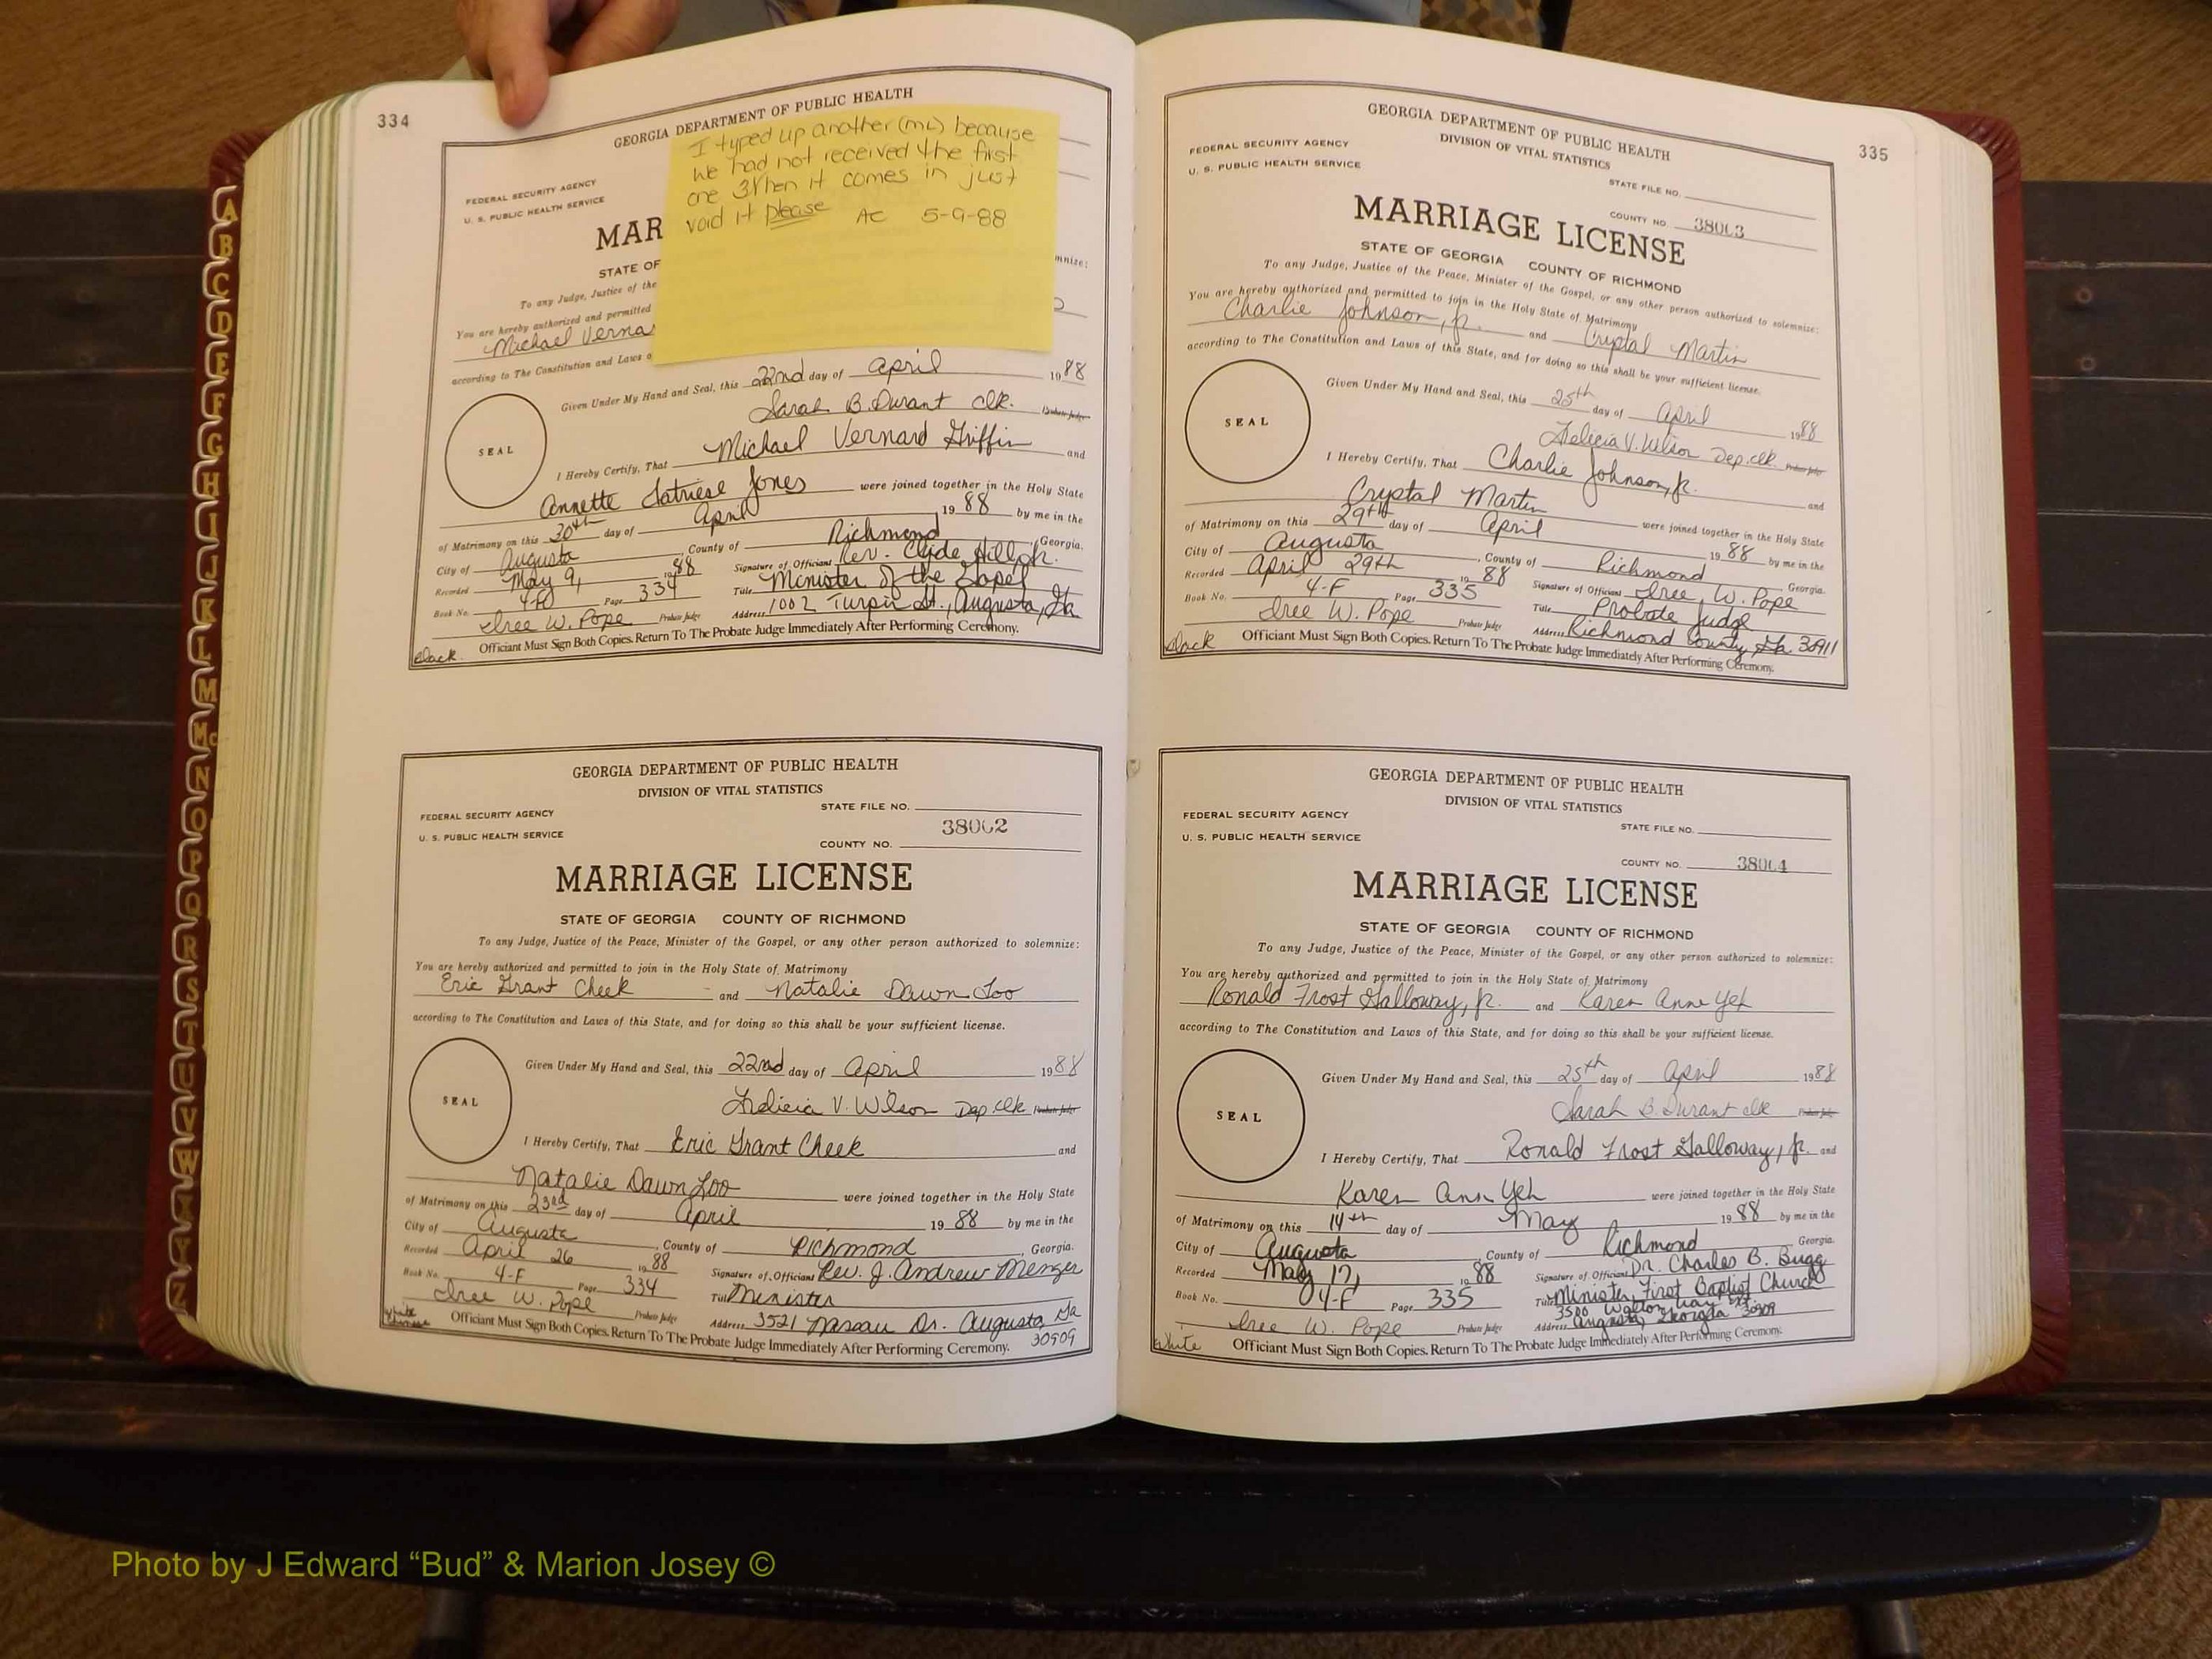 334
GEORGIA DEPARTMENT OF PUBLIC HEALTH
FEDERAL SECURITY AGENCY
U. S. PUBLIC HEALTH SERVICE
I typed up another (ML) because
we had not received the first
one. When it comes in just
void it please AC 5-9-88
MAR
STATE OF
To any Judge, Justice of the
mnize:
You are hereby authorized and permitted
Michael Verna
according to The Constitution and Laws o
Given Under My Hand and Seal, this 22nd day of April 1988
Sarah B. Durant Clk. Probate Judge
SEAL
I Hereby Certify, That Michael Vernard Griffin and
Annette Jones were joined together in the Holy State
of Matrimony on this 30th day of April 1988 by me in the
City of Augusta, County of Richmond, Georgia.
Recorded May 9, 1988 Signature of Officiant Rev. Clyde Hill
Book No. Page 334 Title Minister of the Gospel
Probate Judge Address 1002 Turpin St., Augusta, Ga
W. Pope
Officiant Must Sign Both Copies. Return To The Probate Judge Immediately After Performing Ceremony.
Black
GEORGIA DEPARTMENT OF PUBLIC HEALTH
DIVISION OF VITAL STATISTICS
FEDERAL SECURITY AGENCY STATE FILE NO.
U. S. PUBLIC HEALTH SERVICE COUNTY NO. 38002
MARRIAGE LICENSE
STATE OF GEORGIA COUNTY OF RICHMOND
To any Judge, Justice of the Peace, Minister of the Gospel, or any other person authorized to solemnize:
You are hereby authorized and permitted to join in the Holy State of Matrimony
Eric Grant Cheek and Natalie Dawn Loo
according to The Constitution and Laws of this State, and for doing so this shall be your sufficient license.
Given Under My Hand and Seal, this 22nd day of April 1988
Felicia V. Wilson Dep. Clk Probate Judge
SEAL
I Hereby Certify, That Eric Grant Cheek and
Natalie Dawn Loo were joined together in the Holy State
of Matrimony on this 23rd day of April 1988 by me in the
City of Augusta, County of Richmond, Georgia.
Recorded April 26 1988 Signature of Officiant Rev. J. Andrew Menger
Book No. 4-F Page 334 Title Minister
W. Pope Probate Judge Address 3521 Nassau Dr. Augusta, Ga
30909
Officiant Must Sign Both Copies. Return To The Probate Judge Immediately After Performing Ceremony.
White
335
GEORGIA DEPARTMENT OF PUBLIC HEALTH
DIVISION OF VITAL STATISTICS
FEDERAL SECURITY AGENCY STATE FILE NO.
U. S. PUBLIC HEALTH SERVICE COUNTY NO. 38003
MARRIAGE LICENSE
STATE OF GEORGIA COUNTY OF RICHMOND
To any Judge, Justice of the Peace, Minister of the Gospel, or any other person authorized to solemnize:
You are hereby authorized and permitted to join in the Holy State of Matrimony
Charlie Johnson, Jr. and Crystal Martin
according to The Constitution and Laws of this State, and for doing so this shall be your sufficient license.
Given Under My Hand and Seal, this 25th day of April 1988
Felicia V. Wilson Dep. Clk. Probate Judge
SEAL
I Hereby Certify, That Charlie Johnson, Jr. and
Crystal Martin were joined together in the Holy State
of Matrimony on this 29th day of April 1988 by me in the
City of Augusta, County of Richmond Georgia.
Recorded April 29th 1988 Signature of Officiant W. Pope
Book No. 4-F Page 335 Title Probate Judge
W. Pope Probate Judge Address Richmond County, Ga. 30911
Officiant Must Sign Both Copies. Return To The Probate Judge Immediately After Performing Ceremony.
Black
GEORGIA DEPARTMENT OF PUBLIC HEALTH
DIVISION OF VITAL STATISTICS
FEDERAL SECURITY AGENCY STATE FILE NO.
U. S. PUBLIC HEALTH SERVICE COUNTY NO. 38004
MARRIAGE LICENSE
STATE OF GEORGIA COUNTY OF RICHMOND
To any Judge, Justice of the Peace, Minister of the Gospel, or any other person authorized to solemnize:
You are hereby authorized and permitted to join in the Holy State of Matrimony
Ronald Frost Galloway, Jr. and Karen Anne Yeh
according to The Constitution and Laws of this State, and for doing so this shall be your sufficient license.
Given Under My Hand and Seal, this 25th day of April 1988
Sarah B. Durant Clk Probate Judge
SEAL
I Hereby Certify, That Ronald Frost Galloway, Jr. and
Karen Ann Yeh were joined together in the Holy State
of Matrimony on this 14th day of May 1988 by me in the
City of Augusta, County of Richmond Georgia.
Recorded May 17, 1988 Signature of Officiant Dr. Charles B. Bugg
Book No. 4-F Page 335 Title Minister, First Baptist Church
3500 Walton Way Ext
W. Pope Probate Judge Address Augusta, Georgia 30909
Officiant Must Sign Both Copies. Return To The Probate Judge Immediately After Performing Ceremony.
White
A
B
C
D
E
F
G
H
I
J
K
L
M
Mc
N
O
P
Q
R
S
T
U
V
W
X
Y
Z
Photo by J Edward “Bud” & Marion Josey ©